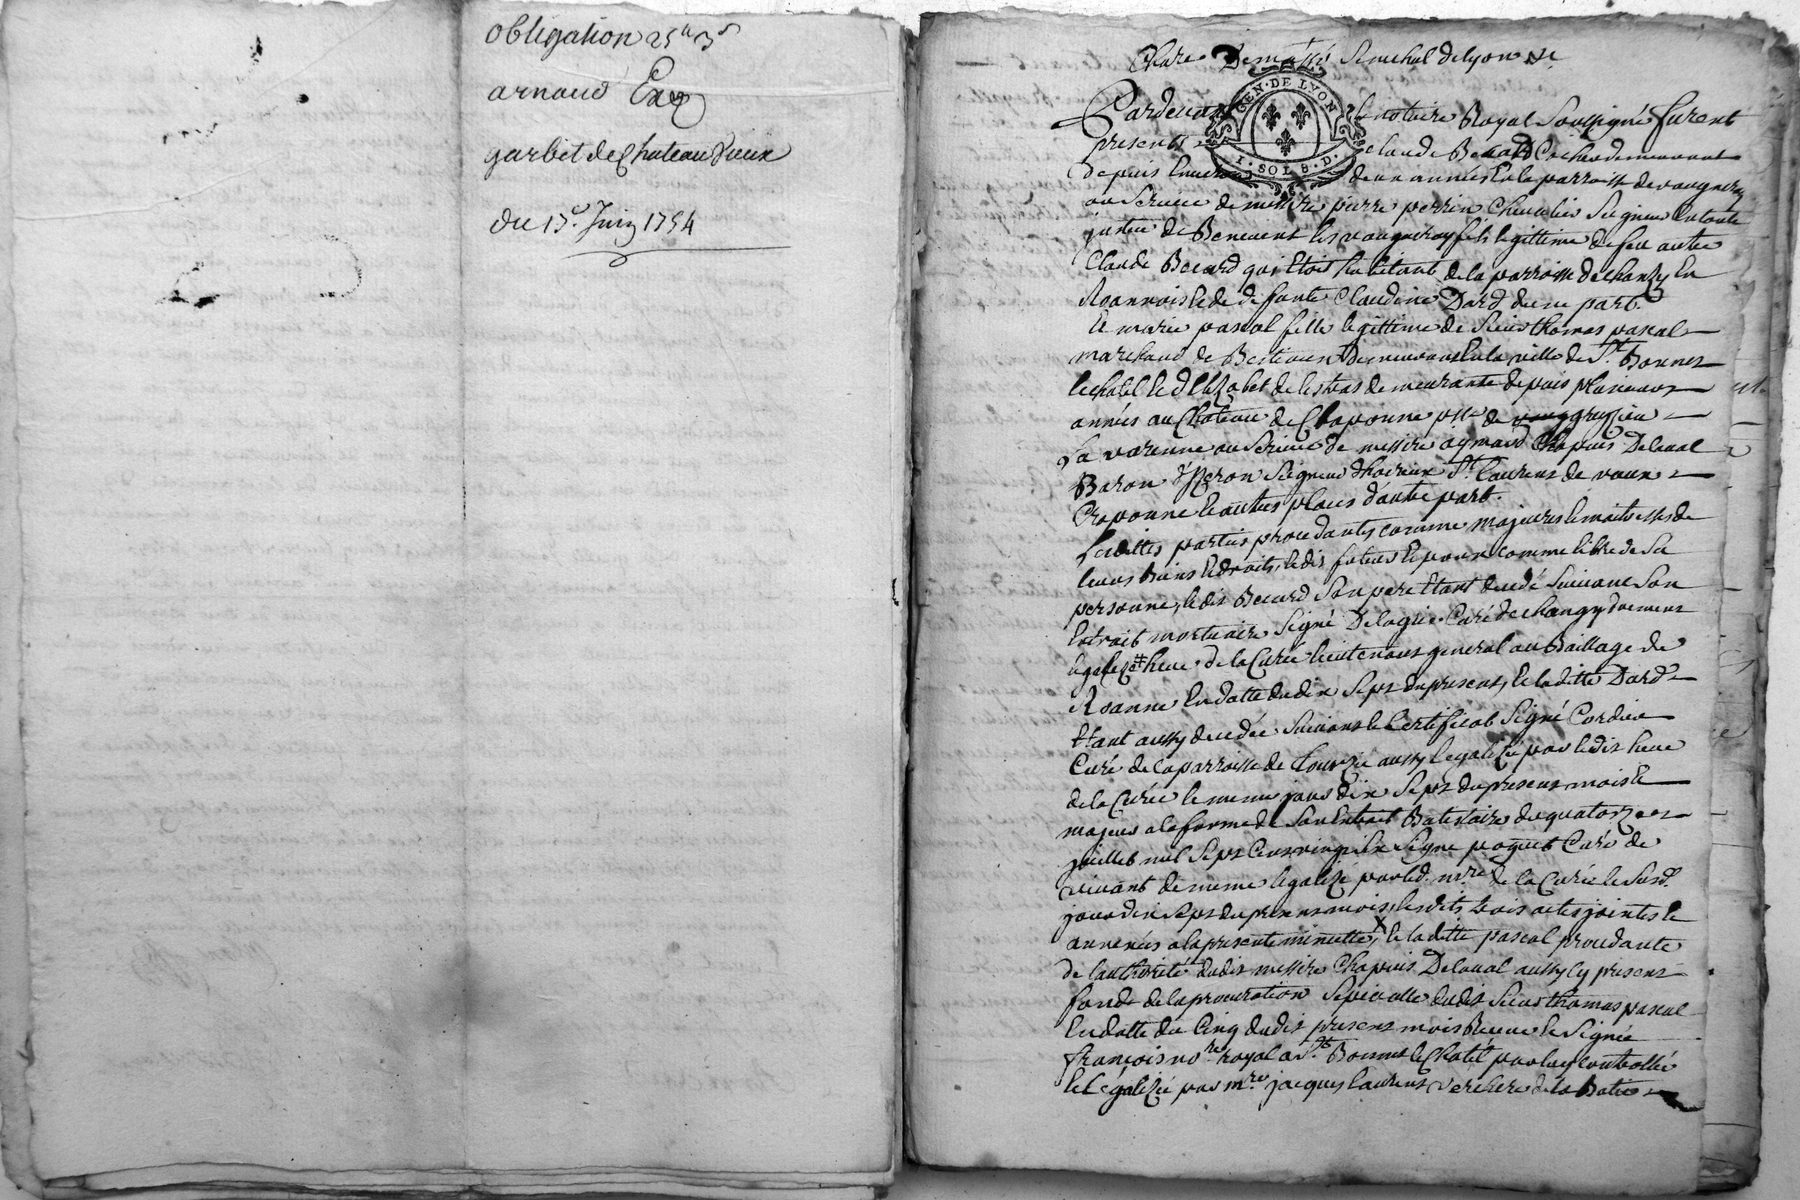 obligation 25ᵗᵗ 3ˢ
arnaud
garbit de Chateau Vieux
du 13ᵉ Juin 1754
De Senechal de lyon &c
GEN · DE LYON
I · SOL 8 · D ·
Pardevant Le notaire Royal Soussigné furent
presents Claude Becard Cocher demeurant
depuis Environ deux années En la parroisse de vaugneray
au Service de messire pierre perrin Chevalier Seigneur En toute
justice de Benevent les vaugneray fils legittime de feu autre
Claude Becard qui Etoit habitant de la parroisse de changy En
Roannois & de défunte Claudine Dard d'une part.
Et marie pascal fille legittime de Sieur thomas pascal
marchand de Bestiaux Demeurant En la ville de St. Bonnet
le chatel & d'Elizabet de lestras demeurante depuis plusieurs
années au Chateau de Craponne psse de grezieu
La varenne au Service de messire aymard Chapuis Delaval
Baron d'Yzeron Seigneur St. laurens de vaux
Craponne & autres places d'autre part.
Lesdittes parties procedantes comme majeures & maitresses de
leurs biens & droits, ledit futur Epoux comme libre de Sa
personne, ledit Becard Son pere Etant decedé Suivant Son
Extrait mortuaire Signé Delagrie Curé de changy duement
legalizé heue de la Curée lieutenant general au Baillage de
Roanne En datte du dix Sept du present, & laditte Dard
Etant aussy decedée Suivant le Certificat Signé Cordier
Curé de la parroisse de aussy legalizé par ledit heue
de la Curée le meme jour dix Sept du present mois &
majeur a la forme de Son Extrait Batistaire du quatorze
juillet mil Sept Cens vingt Six Signé poquet Curé de
vivant de meme legalizé par led. mre de la Curée le Susd.
jour dix Sept du present mois, lesdits trois actes joints &
annexés a la presente minutte, & laditte pascal procedante
de l'authorité dudit messire Chapuis Delaval aussy cy present
fondé de la procuration Specialle dudit Sieur thomas pascal
En datte du Cinq dudit present mois Receue & Signée
françois nore. royal a St. Bonnet le Chatel par luy controllée
& Legalizée par mre. jacques laurens verchere de la Batie